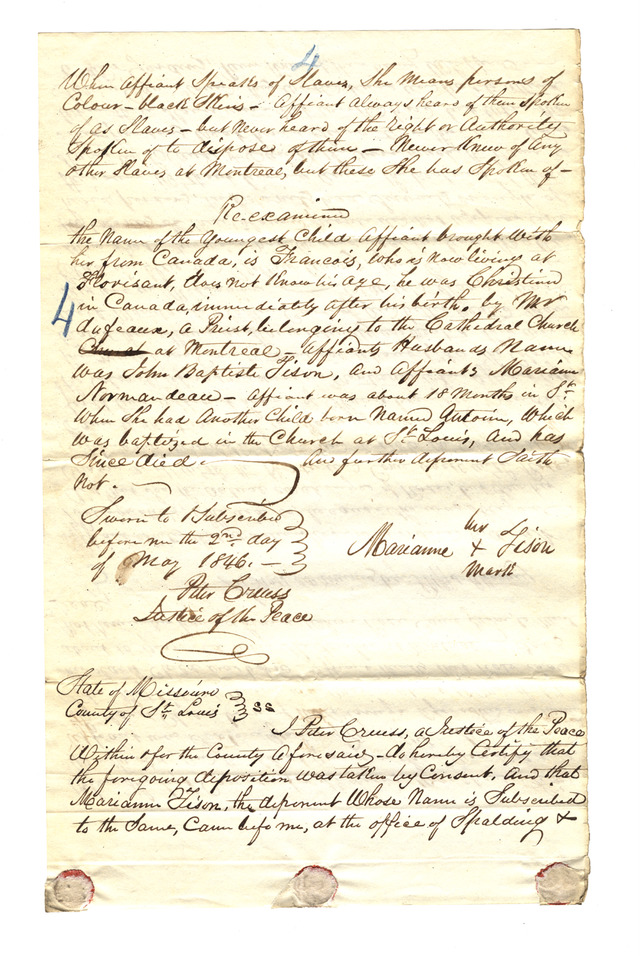 4
When affiant Speaks of Slaves, She Means persons of
Colour – black Skins – Affiant always heard of them Spoken
of as Slaves – but Never heard of the right or Authority
Spoken of to disposed of them – Never Knew of Any
other Slaves at Montreal, but these She has Spoken of –
Re-examined
the Name of the Youngest Child Affiant brought With
her from Canada, is Francois, who is now living at
Florisant, does not Know his age, he was Christined
4
in Canada, immediately after his birth. by Mr
dufeaux, a Priest, belonging to the Cathedral Church
at Montreal – affiants Husbands Name
Was John Baptiste Tison, and Affiants Mariane
Normandeau – affiant was about 18 Months in St.
When She had Another Child born Named Antoin, Which
was baptized in the Church at St. Louis, and has
Since died. And further deponent Saith
Not. –
Sworn to & Subscribed
before me the 2nd day
of May 1846. –
her
Marianne + Tison
Mark
Peter Creuss
Justice of the Peace
State of Missouri
County of St. Louis } SS
I Peter Creuss, a Justice of the Peace
Within & for the County aforesaid – do hereby Certify that
the foregoing deposition was taken by Consent, and that
Marianne Tison, the deponent Whose Name is Subscribed
to the Same, Came before me, at the office of Spalding &